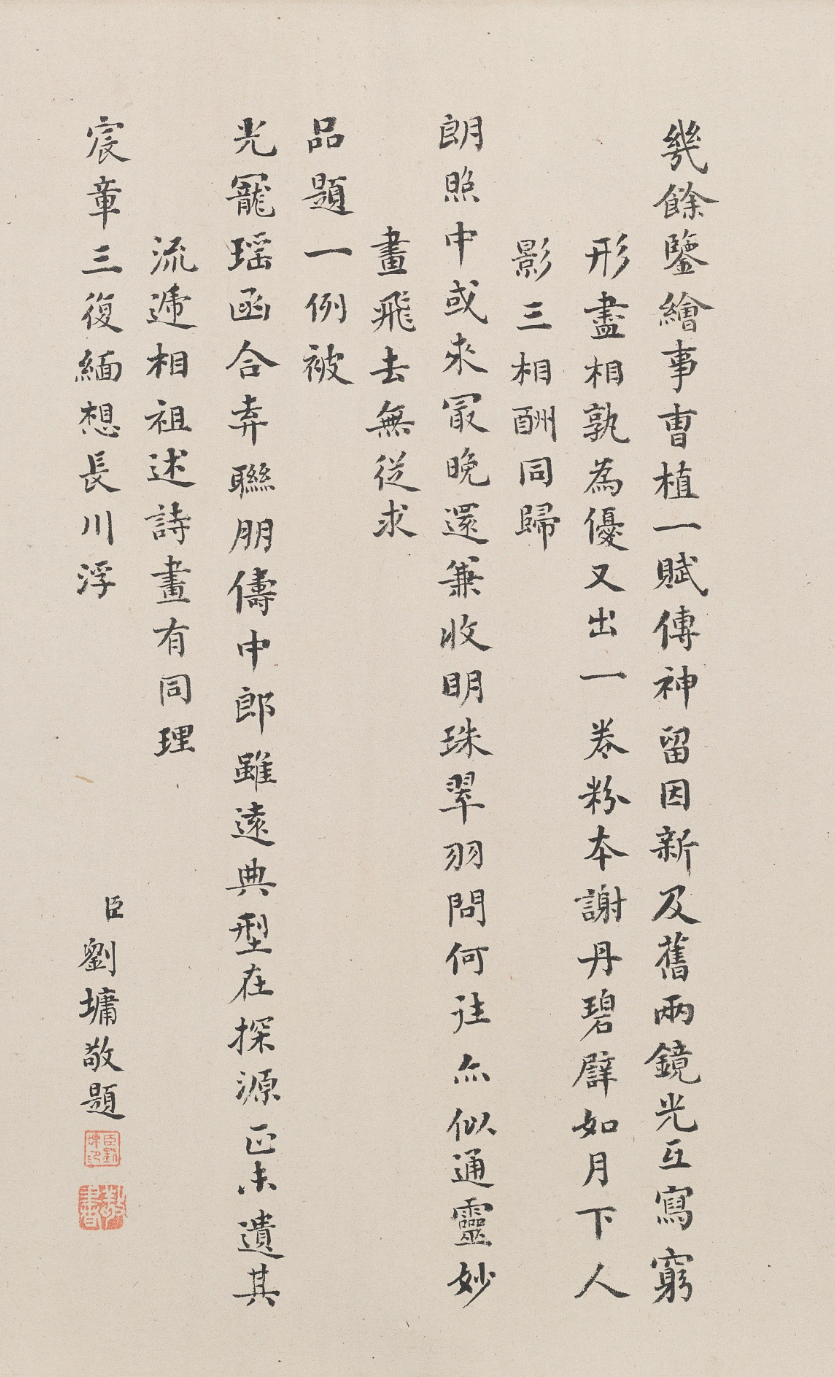 幾餘鑒繪事曹植一賦傳神留因新及舊兩鏡光互寫窮
形盡相孰為優又出一卷粉本謝丹碧譬如月下人
影三相酬同歸
朗照中或來冣晚還兼收明珠翠羽問何往亦似通靈妙
畫飛去無従求
品題一例被
光寵瑶函合弆聯朋儔中郎雖遠典型在探源正未遺其
流遞相祖述詩畫有同理
宸章三復緬想長川浮
臣劉墉敬題
臣劉墉印
敬書